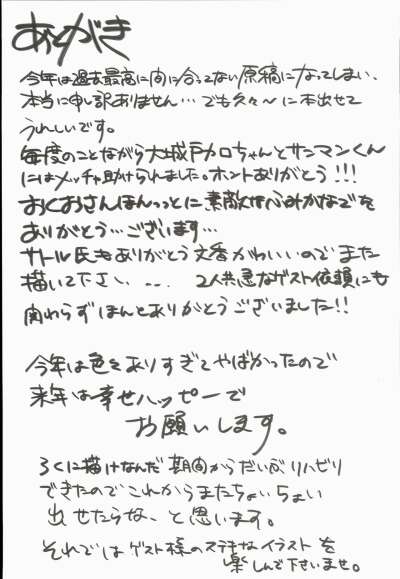 あとがき
今年は過去最高に間に合ってない原稿になってしまい、
本当に申し訳ありません…でも久々〜に本出せて
うれしいです。
毎度のことながら大城戸カロちゃんとサンマンくん
にはメッチャ助けられました。ホントありがとう!!!
おくおさんほんっっとに素敵なふみかなでを
ありがとう…ございます…
サトル氏もありがとう文香かわいいのでまた
描いて下さい…. 2人共急なゲスト依頼にも
関わらずほんとありがとうございました!!
今年は色々ありすぎてやばかったので
来年は幸せハッピーで
お願いします。
ろくに描けなんだ期間からだいぶリハビリ
できたのでこれからまたちょいちょい
出せたらな、と思います。
それではゲスト様のステキなイラストを
楽しんで下さいませ。